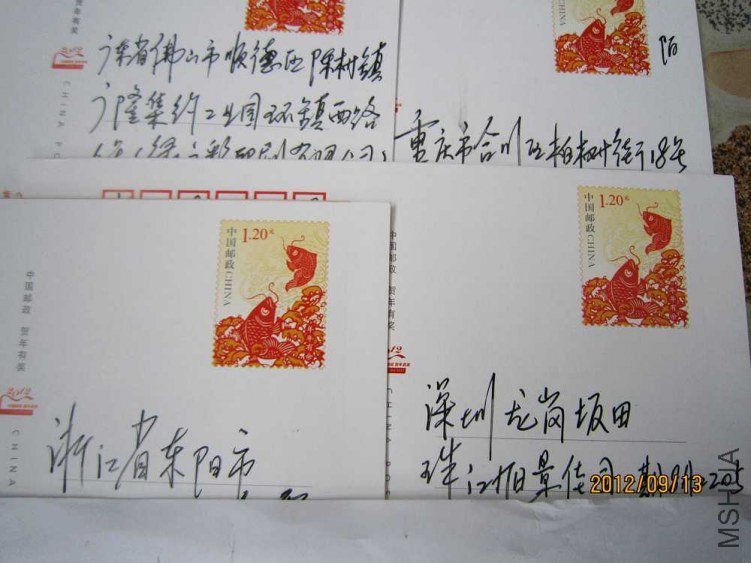 广东省佛山市顺德区陈村镇
广隆集约工业园环镇西路
贺年有奖
2012
CHINA PO
陌
重庆市合川区柏树街18号
1.20元
中国邮政
CHINA
中国邮政 贺年有奖
2012
CHINA
浙江省东阳市
1.20元
中国邮政
CHINA
中国邮政 贺年有奖
2012
CHINA PO
深圳龙岗坂田
珠江旭景佳园
2012/09/13
MSHUA